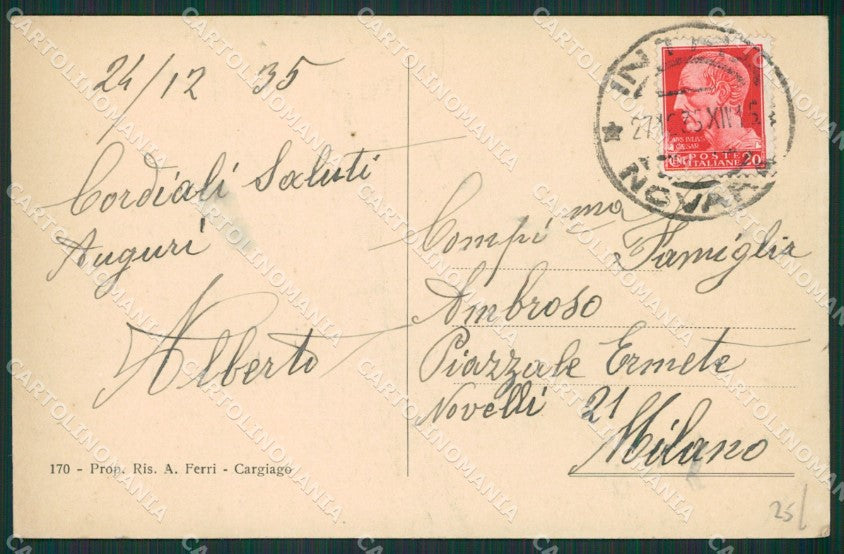 24/12 35
Cordiali Saluti
Auguri
Alberto
170 - Prop. Ris. A. Ferri - Cargiago
INTRA
NOVARA
POSTE
ITALIANE 20
Compi ma Famiglia
Ambroso
Piazzale Ermete
Novelli 21
Milano
25/
CARTOLINOMANIA